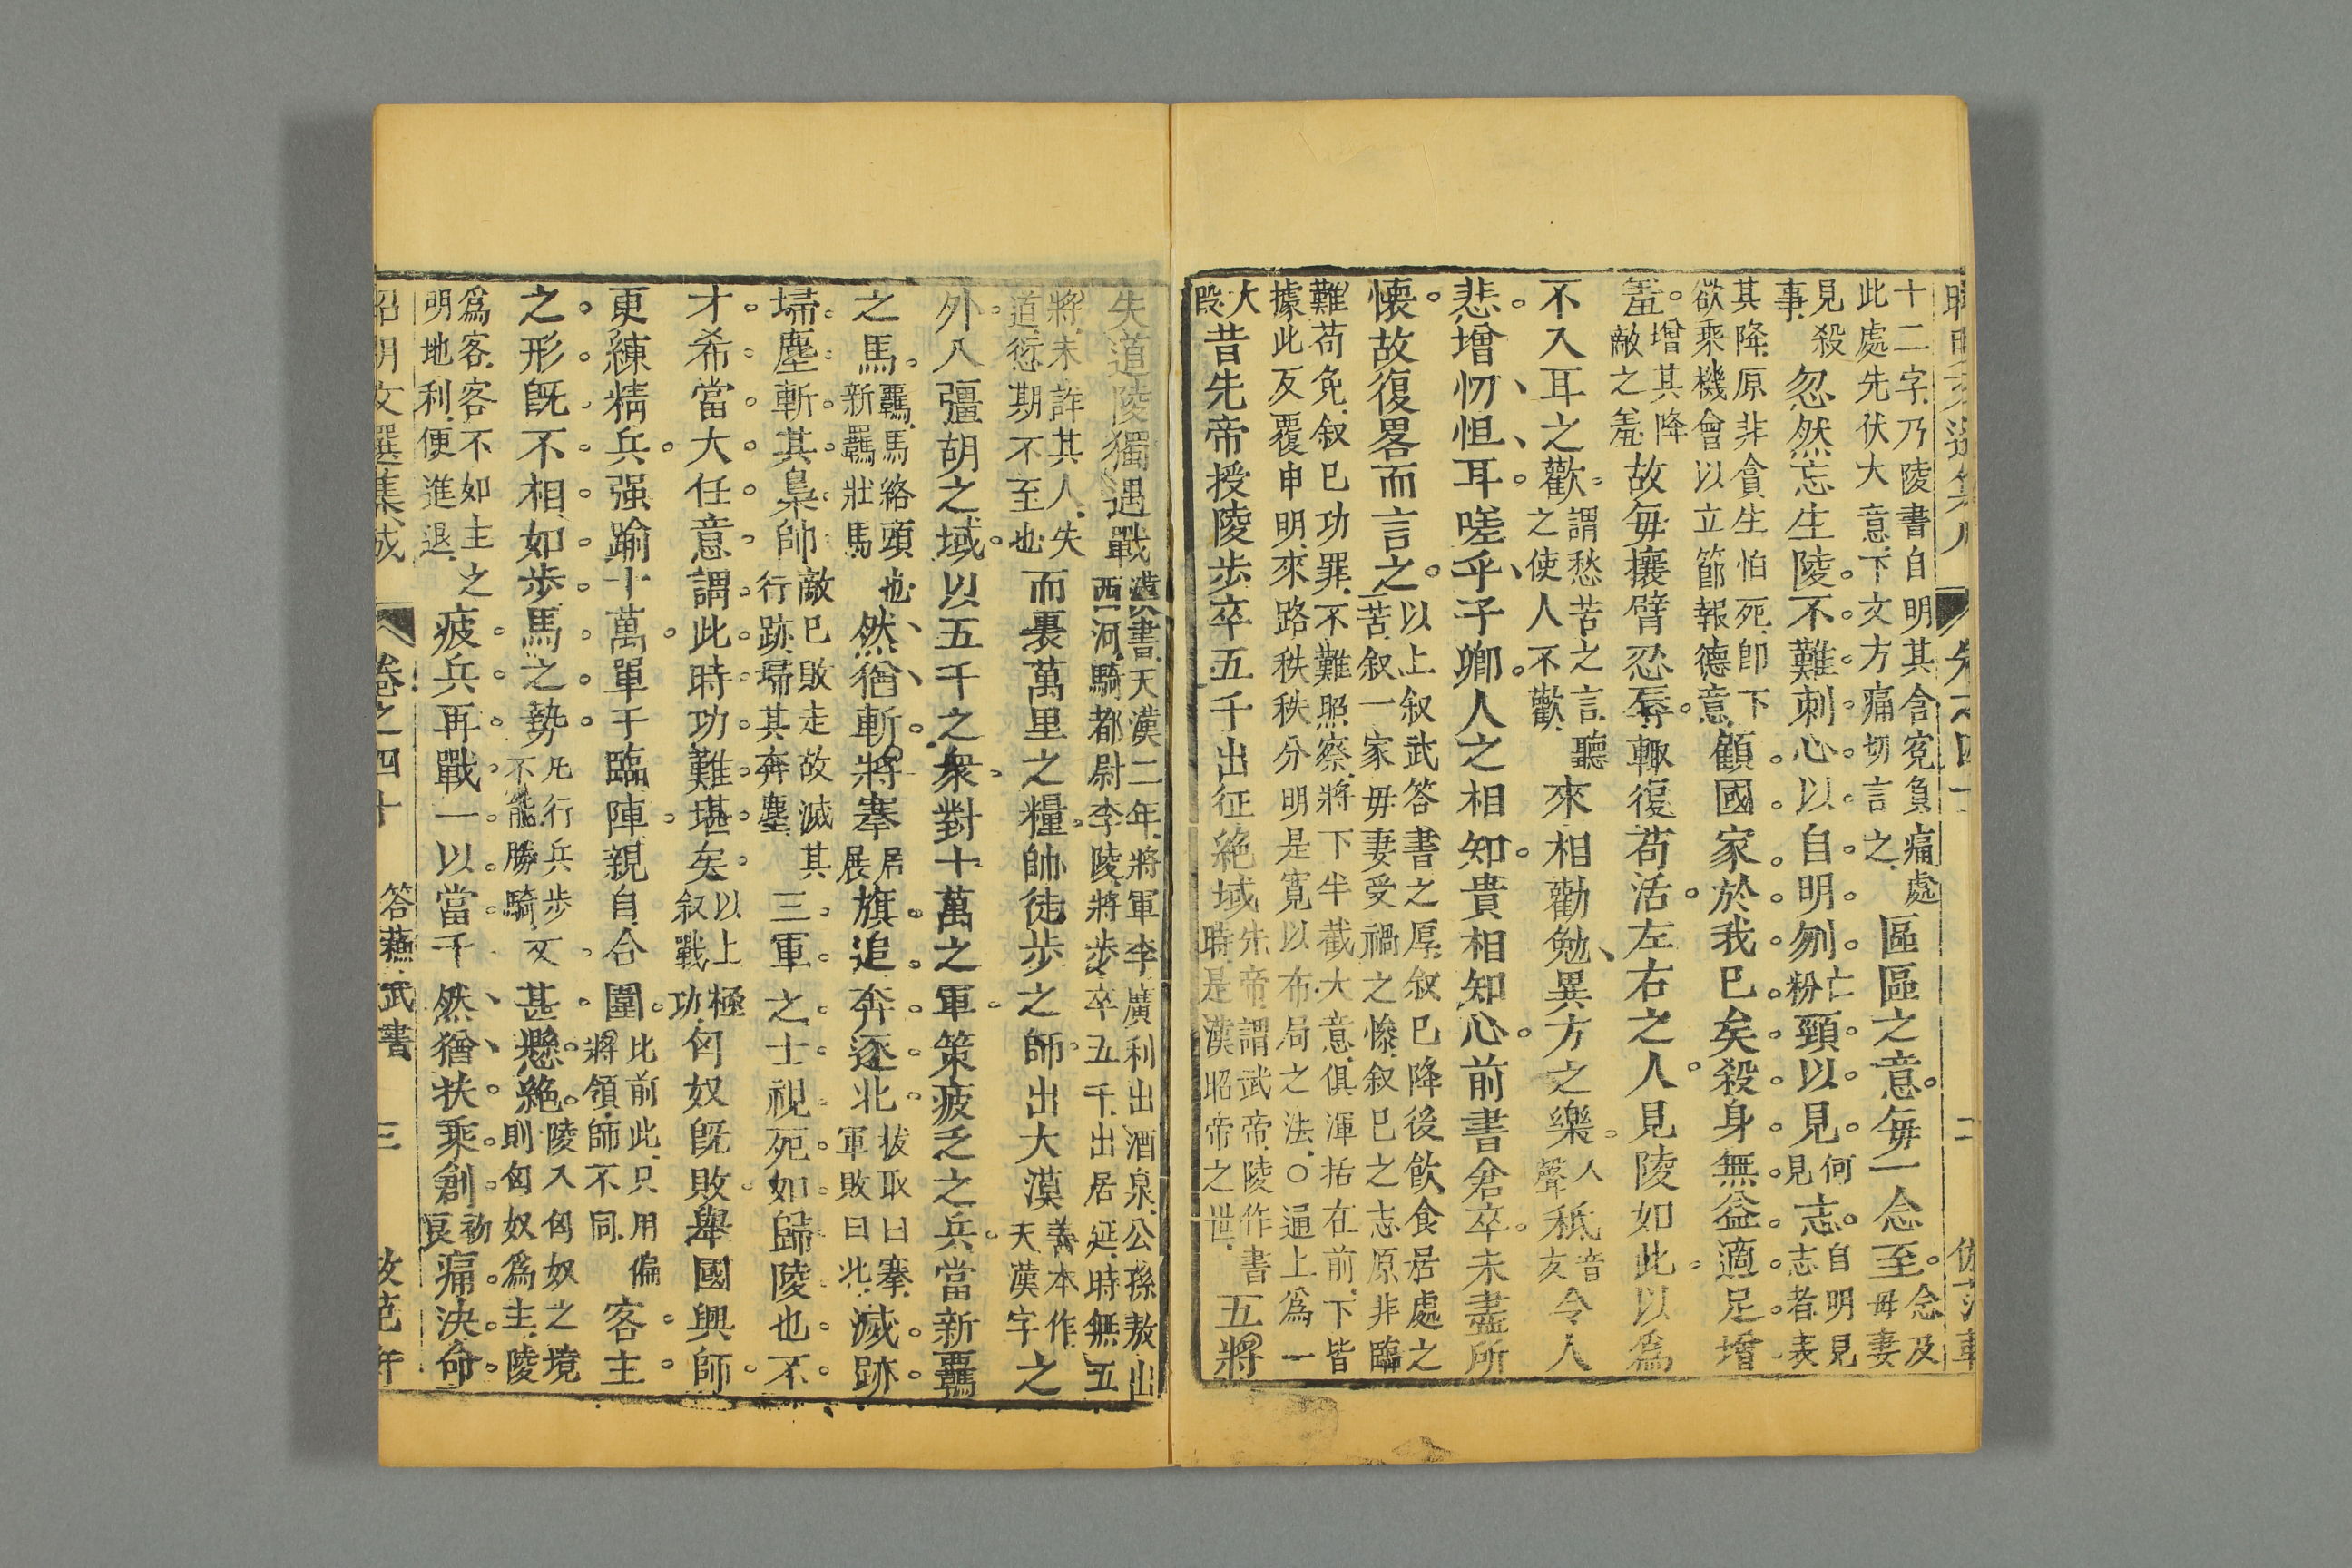 十二字乃陵書自明其含寃負痛處
此處先伏大意下文方痛切言之
區區之意每一念至
念及
母妻
見殺
事
忽然忘生陵不難刺心以自明刎
亡
粉
頸以見
何
見
志
自明見
志者表
其降原非貪生怕死卽下
欲乘機會以立節報德意
顧國家於我已矣殺身無益適足增
羞
增其降
敵之羞
故每攘臂忍辱輙復苟活左右之人見陵如此以爲
不入耳之歡
謂愁苦之言聽
之使人不歡
來相勸勉異方之樂
人
聲
秪
音
友
令人
悲增忉怛耳嗟乎子卿人之相知貴相知心前書倉卒未盡所
懷故復畧而言之
以上叙武答書之厚叙已降後飲食居處之
苦叙一家毋妻受禍之慘叙已之志原非臨
難苟免叙已功罪不難照察將下半截大意俱渾括在前下皆
據此反覆申明來路秩秩分明是寛以布局之法○通上爲一
大
段
昔先帝授陵步卒五千出征絶域
先帝謂武帝陵作書
時是漢昭帝之世
五將
失道陵獨遇戰
漢書天漢二年將軍李廣利出酒泉公孫敖出
西河騎都尉李陵將步卒五千出居延時無五
將未詳其人失
道愆期不至也
而裹萬里之糧帥徒步之師出大漠
善本作
天漢字
之
外入彊胡之域以五千之衆對十萬之軍策疲乏之兵當新羈
之馬
羈馬絡頭也
新羈壯馬
然猶斬將搴
居
展
旗追奔逐北
拔取曰搴
軍敗曰北
滅跡
埽塵斬其梟帥
敵已敗走故滅其
行跡埽其奔塵
三軍之士視死如歸陵也不
才希當大任意謂此時功難堪矣
以上極
叙戰功
匈奴旣敗舉國興師
更練精兵强踰十萬單于臨陣親自合圍
比前此只用偏
將領師不同
客主
之形旣不相如步馬之勢
凡行兵步
不能勝騎
又甚懸絶
陵入匈奴之境
則匈奴爲主陵
爲客客不如主之
明地利便進退
疲兵再戰一以當千然猶扶乘創
初
良
痛決命
昭明文選集成
卷之四十
答蘇武書
三